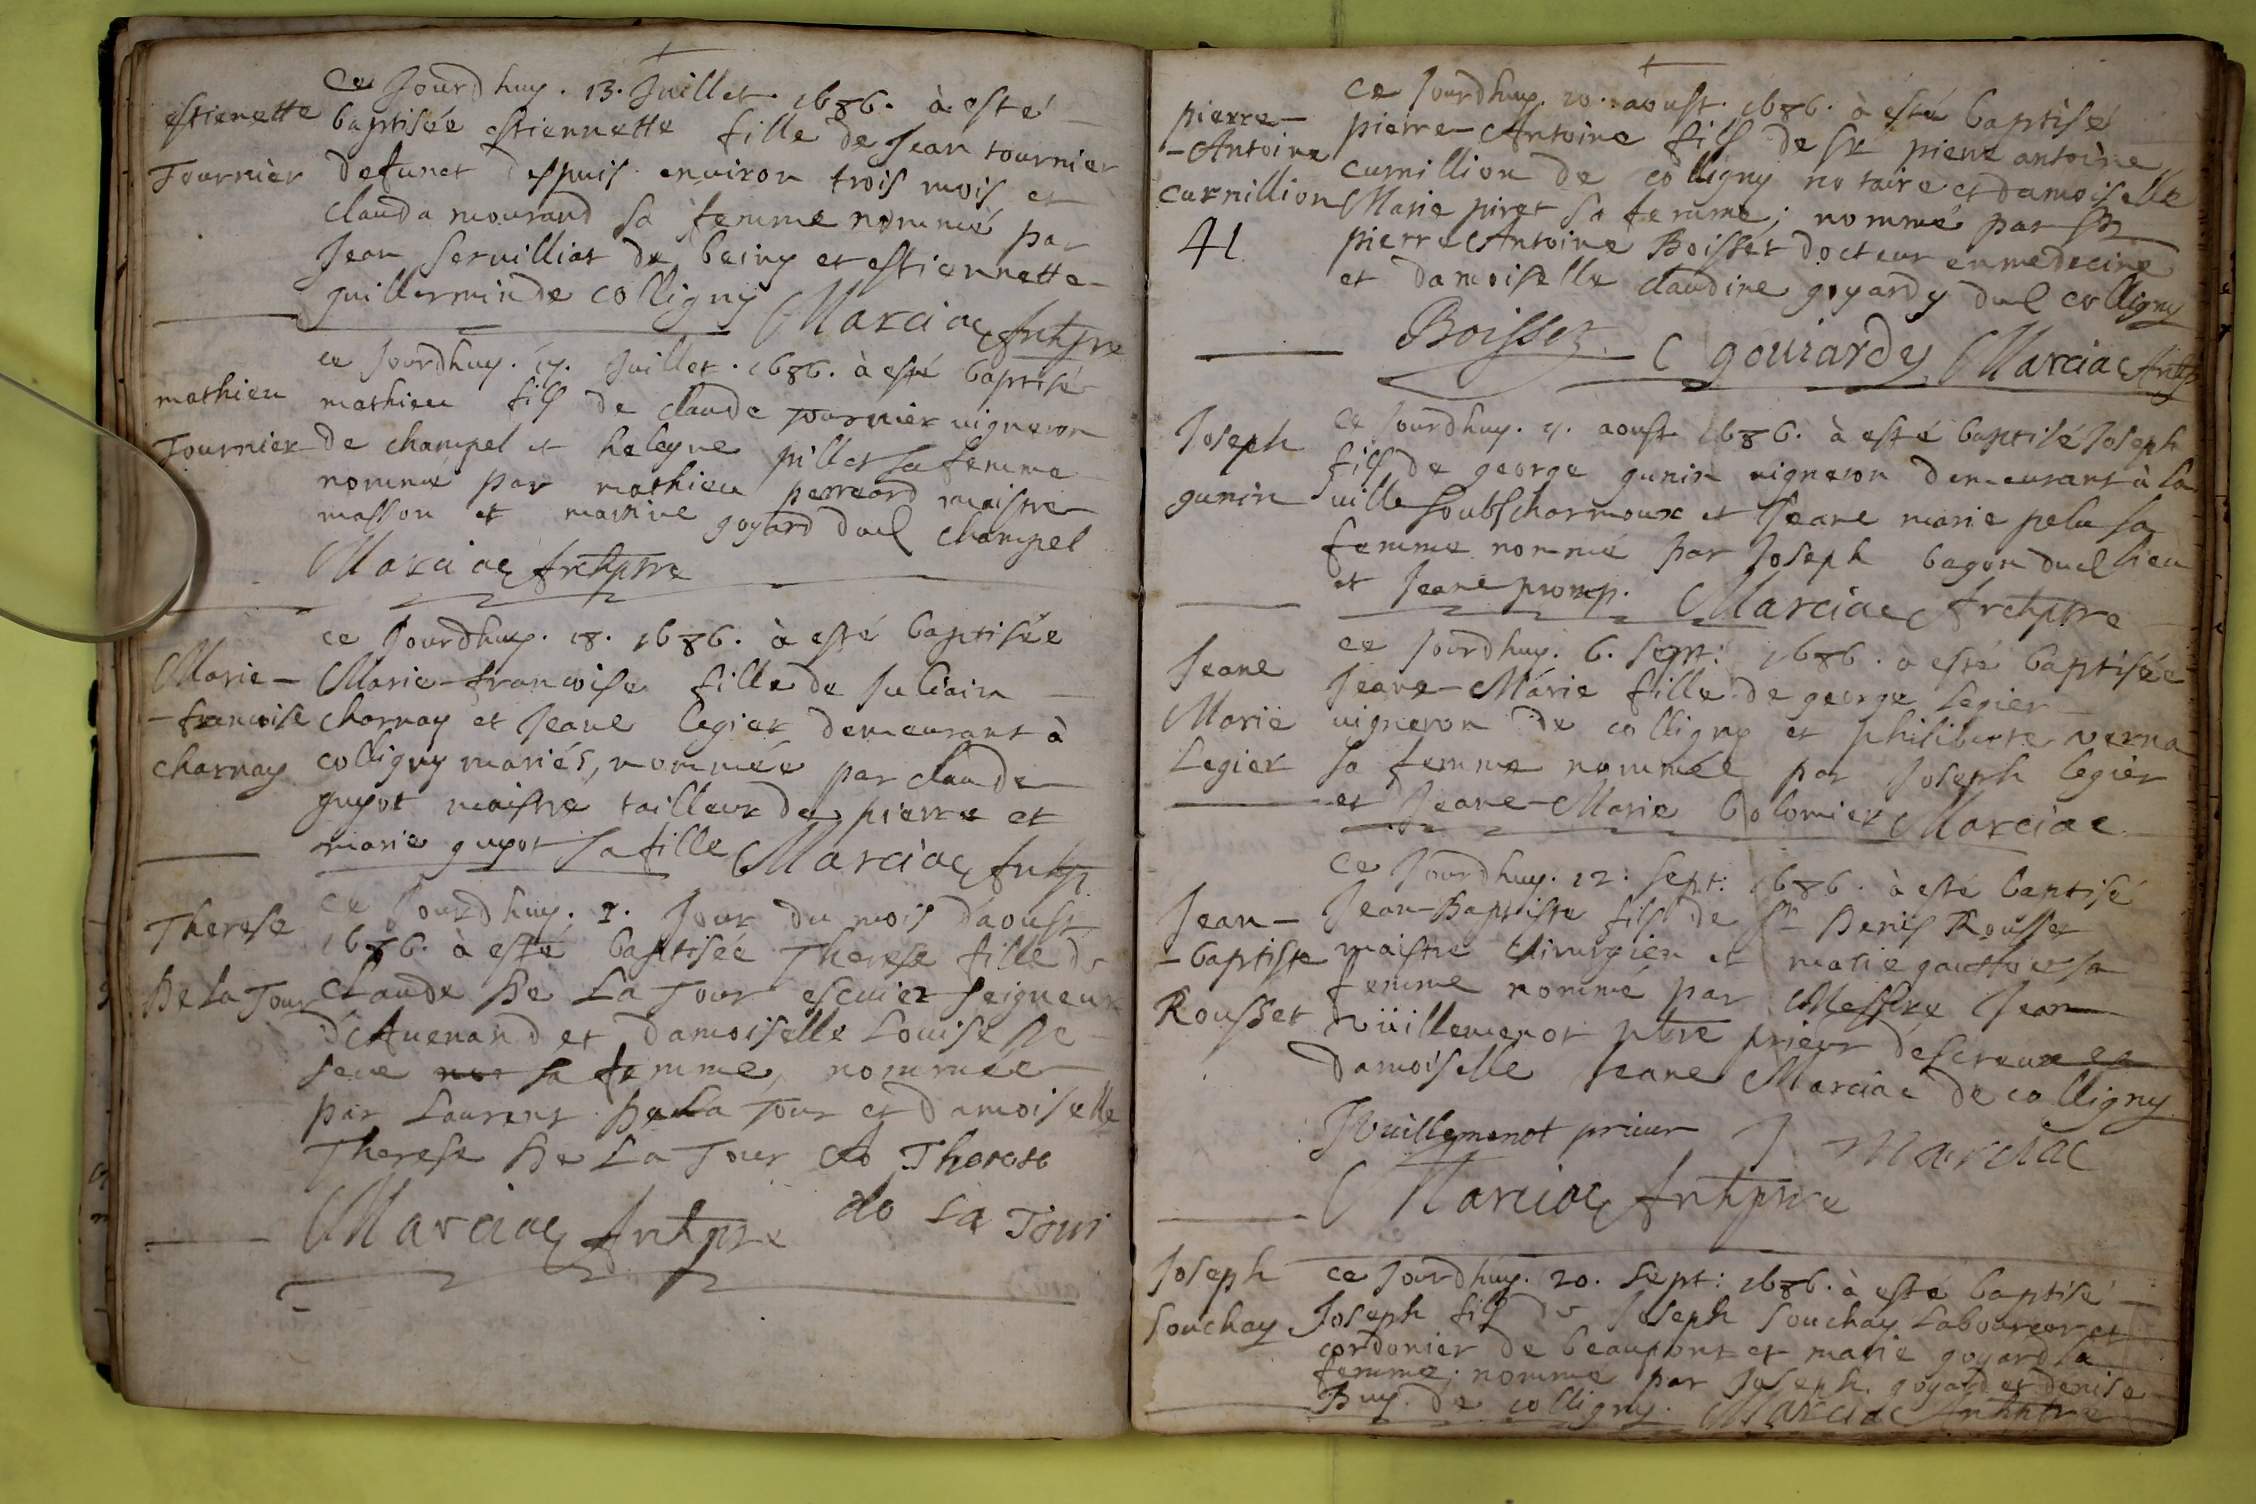 estienette
Tournier
ce Jourdhuy. 13. Juillet 1686. à esté
baptisée estiennette fille de Jean tournier
defunct despuis environ trois mois et
clauda mourand sa femme nommé par
Jean servilliat de beiny et estiennette
guillermin de colligny Marciac Archpre
mathieu
Tournier
ce Jourdhuy. 17. Juillet. 1686. à esté baptisé
mathieu fils de claude tournier vigneron
de champel et heleyne pillet sa femme
nommé par mathieu perreard maistre
masson et goyard dud champel
Marciac Archpre
Marie-
-francoise
charnay
ce Jourdhuy. 18. 1686. à esté baptisée
Marie-francoise fille de Juliain
charnay et Jeane legier demeurant à
colligny mariés, nommée par claude
guyot maistre tailleur de pierre et
marie guyot sa fille Marciac Archp.
Therese
De La Tour
ce Jourdhuy. 1. Jour du mois daoust
1686. à esté baptisée Therese fille de
claude De La Tour escuier seigneur
dAuenand et damoiselle Louise De
seue sa femme, nommée
par Laurent De La Tour et damoiselle
Therese De La Tour de Therese
de La Tour
Marciac Archpre
pierre-
-Antoine
curnillion
41
ce Jourdhuy. 20. aoust. 1686. à esté baptisé
pierre-Antoine fils de sr pierre antoine
curnillion de colligny notaire et damoiselle
Marie piret sa femme; nommé par sr
pierre Antoine Boisset docteur en medecine
et damoiselle claudine goyardy dud colligny
Boisset C gouiardy Marciac Archp
Joseph
gunin
ce Jourdhuy. aoust 1686. à esté baptisé Joseph
fils de george gunin vigneron demeurant à la
ville soubs charmoux et Jeane marie pelu sa
femme nommé par Joseph bagon dud lieu
et Jeane promp. Marciac Archpre
Jeane
Marie
Legier
ce Jourdhuy. 6. sept: 1686. a esté baptisée
Jeane-Marie fille de george Legier
vigneron de colligny et philiberte verna
sa femme nommée par Joseph legier
et Jeane-Marie Dolomier Marciac
Jean-
-baptiste
Rousset
ce Jourdhuy. 12: sept: 1686. à esté baptisé
Jean-Baptiste fils de sr Denis Rousset
maistre chirurgien et marie sa
femme nommé par Messire Jean
vüillemenot pbre prieur descreux et
damoiselle Jeane Marciac de colligny
JVuillemenot prieur J Marciac
Marciac Archpre
Joseph
Souchay
ce Jourdhuy. 20. sept: 1686. à esté baptisé
Joseph fils de Joseph Souchay Laboureur et
cordonier de beaupont et marie goyard sa
femme; nommé par Joseph goyard et denise
Buy. de colligny. Marciac Archpre